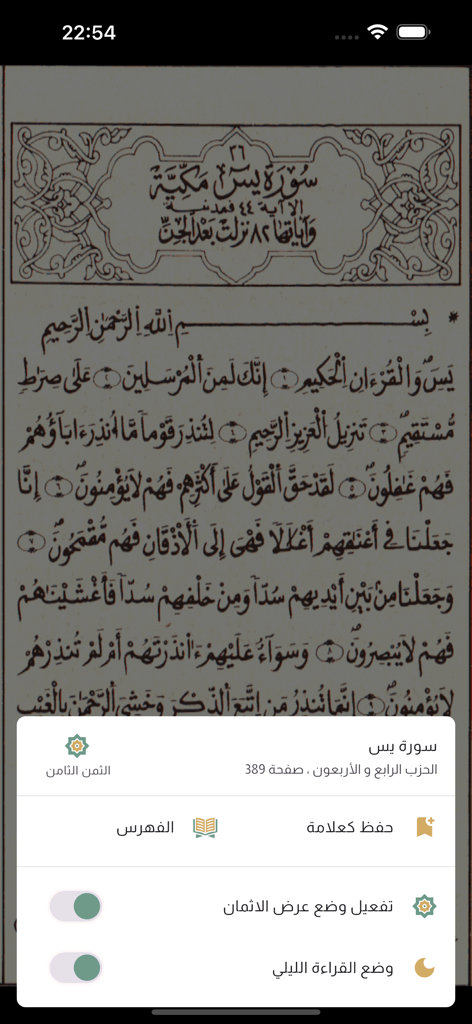 22:54
٣٦
سُورَةُ يسٓ مَكِّيَّة
إلا آية ٤٤ فمدنية
وَآيَاتُهَا ٨٢ نَزَلَتْ بَعْدَ الْجِنِّ
بِسْمِ اِللَّهِ اِلرَّحْمَٰنِ اِلرَّحِيمِ
يَسٓۖ وَالْقُرْءَانِ اِلْحَكِيمِ ۝ إِنَّكَ لَمِنَ اَلْمُرْسَلِينَ ۝ عَلَىٰ صِرَٰطٖ
مُّسْتَقِيمٖۖ ۝ تَنزِيلُ اُلْعَزِيزِ اِلرَّحِيمِ ۝ لِتُنذِرَ قَوْماٗ مَّا أُنذِرَ ءَابَآؤُهُمْ
فَهُمْ غَٰفِلُونَۖ ۝ لَقَدْ حَقَّ اَلْقَوْلُ عَلَىٰٓ أَكْثَرِهِمْ فَهُمْ لَا يُؤْمِنُونَۖ ۝ إِنَّا
جَعَلْنَا فِےٓ أَعْنَٰقِهِمْ أَغْلَٰلاٗ فَهِىَ إِلَى اَلْأَذْقَانِ فَهُم مُّقْمَحُونَۖ ۝
وَجَعَلْنَا مِنۢ بَيْنِ أَيْدِيهِمْ سُدّاٗ وَمِنْ خَلْفِهِمْ سُدّاٗ فَأَغْشَيْنَٰهُمْ
فَهُمْ لَا يُبْصِرُونَۖ ۝ وَسَوَآءٌ عَلَيْهِمْ ءَآنذَرْتَهُمْ أَمْ لَمْ تُنذِرْهُمْ
لَا يُؤْمِنُونَۖ ۝ إِنَّمَا تُنذِرُ مَنِ اِتَّبَعَ اَلذِّكْرَ وَخَشِىَ اَلرَّحْمَٰنَ بِالْغَيْبِ
سورة يس
الحزب الرابع و الأربعون ، صفحة 389
الثمن الثامن
حفظ كعلامة
الفهرس
تفعيل وضع عرض الاثمان
وضع القراءة الليلي